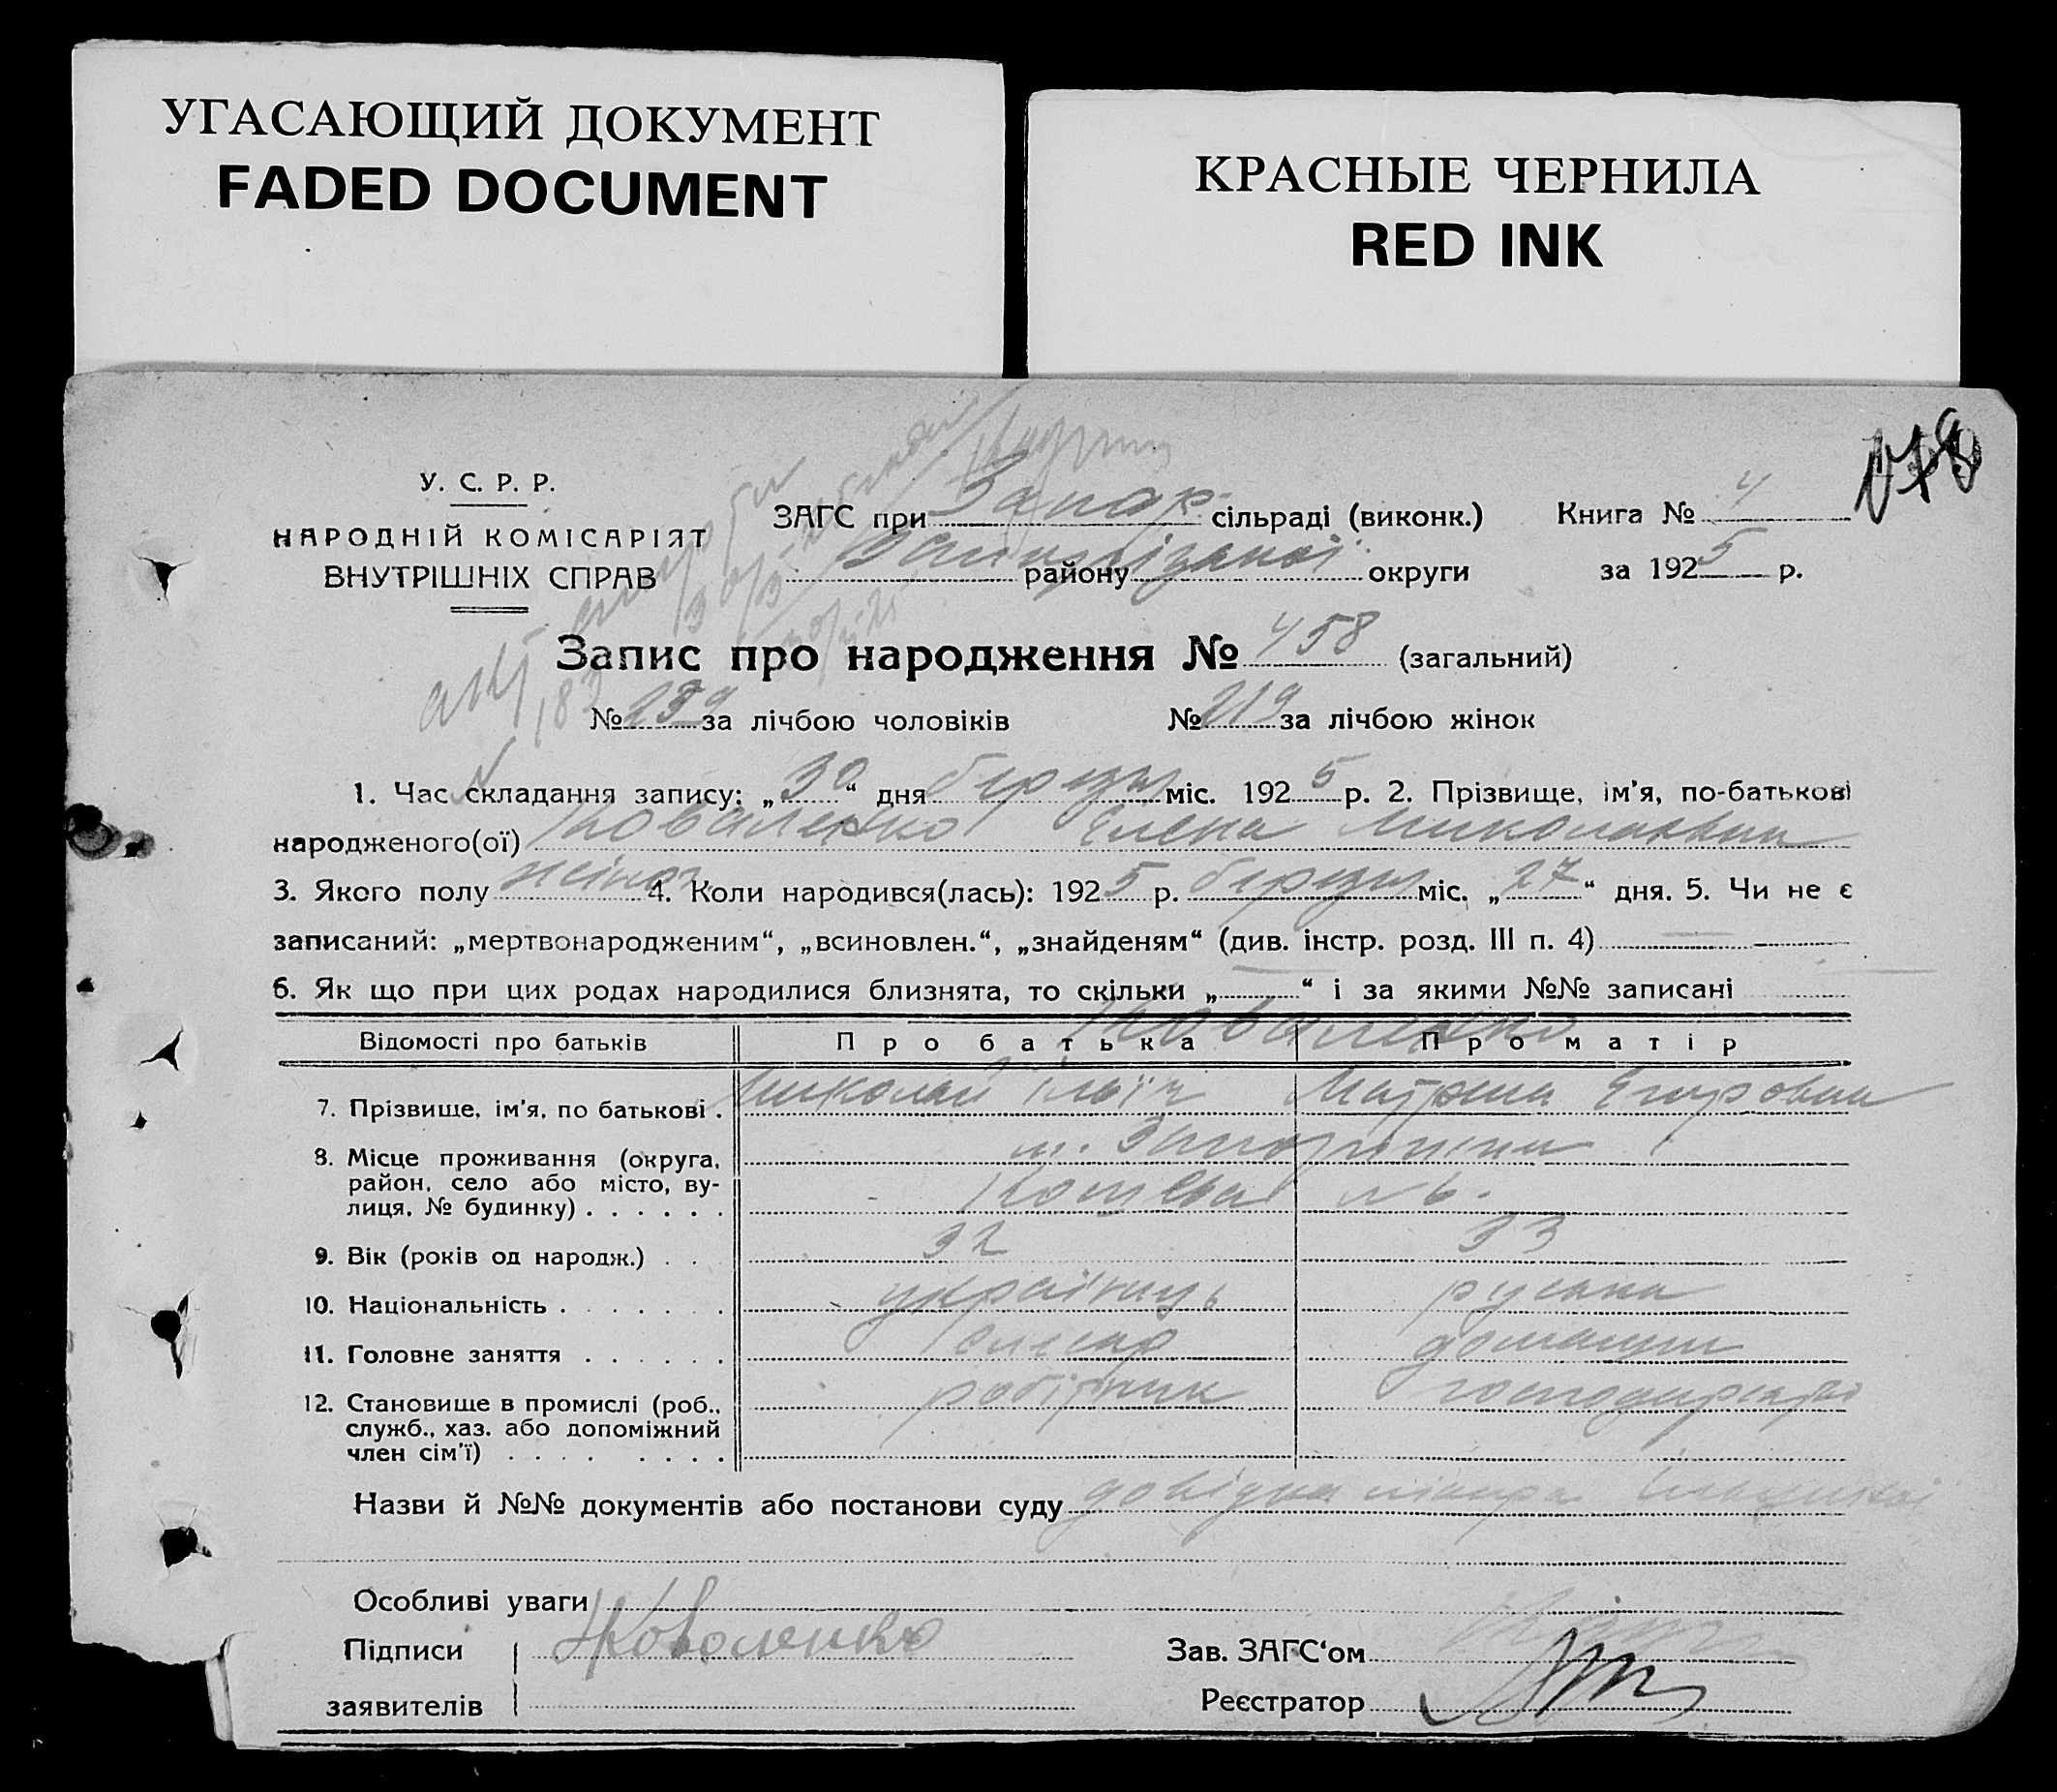 УГАСАЮЩИЙ ДОКУМЕНТ
FADED DOCUMENT
КРАСНЫЕ ЧЕРНИЛА
RED INK
У. С. Р. Р.
НАРОДНІЙ КОМІСАРІЯТ
ВНУТРІШНІХ СПРАВ
ЗАГС при Запор. сільраді (виконк.)
району округи
Книга № 4
за 1925 р.
Запис про народження № 458 (загальний)
№ 239 за лічбою чоловіків № 219 за лічбою жінок
1. Час складання запису: „30“ дня березня міс. 1925 р. 2. Прізвище, ім'я, по-батькові
народженого(ої) Коваленко Елена Миколаевна
3. Якого полу жіноч. 4. Коли народився(лась): 1925 р. березня міс. „27“ дня. 5. Чи не є
записаний: „мертвонародженим“, „всиновлен.“, „знайденям“ (див. інстр. розд. III п. 4)
6. Як що при цих родах народилися близнята, то скільки „ “ і за якими №№ записані
Відомості про батьків Про батька Про матір
Коваленко
7. Прізвище, ім'я, по батькові . Николай Ільїч Матрена Егоровна
8. Місце проживання (округа, м. Запоріжжя
район, село або місто, ву-
лиця, № будинку) . . . . . . № 6.
9. Вік (років од народж.) . . 32 33
10. Національність . . . . . . . українець руська
11. Головне заняття . . . . . . слюсар домашнє
12. Становище в промислі (роб., робітник господарство
служб., хаз. або допоміжний
член сім'ї) . . . . . . . .
Назви й №№ документів або постанови суду довідка лікаря
Особливі уваги
Підписи Коваленко
заявителів
Зав. ЗАГС‘ом
Реєстратор